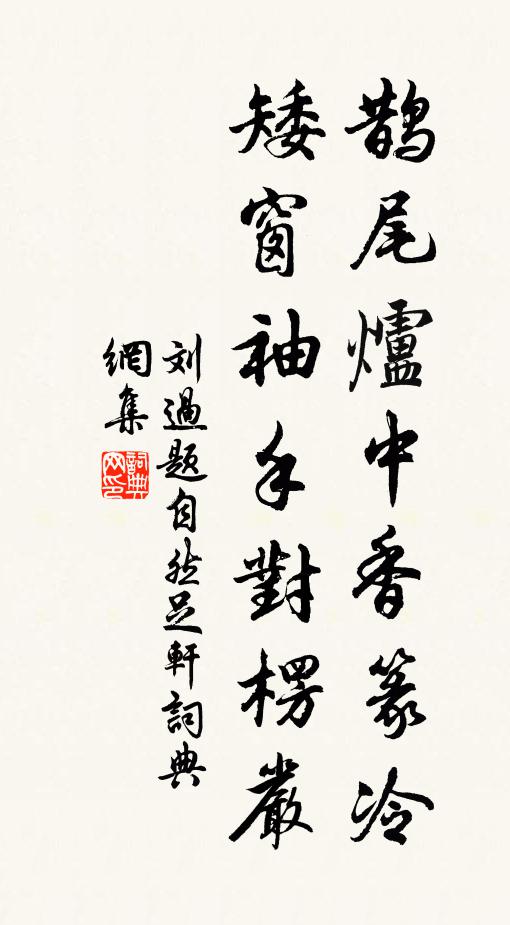 鹊尾爐中香篆冷
矮窗袖手對楞嚴
刘過題自然足軒詞典
網集
詞典网印